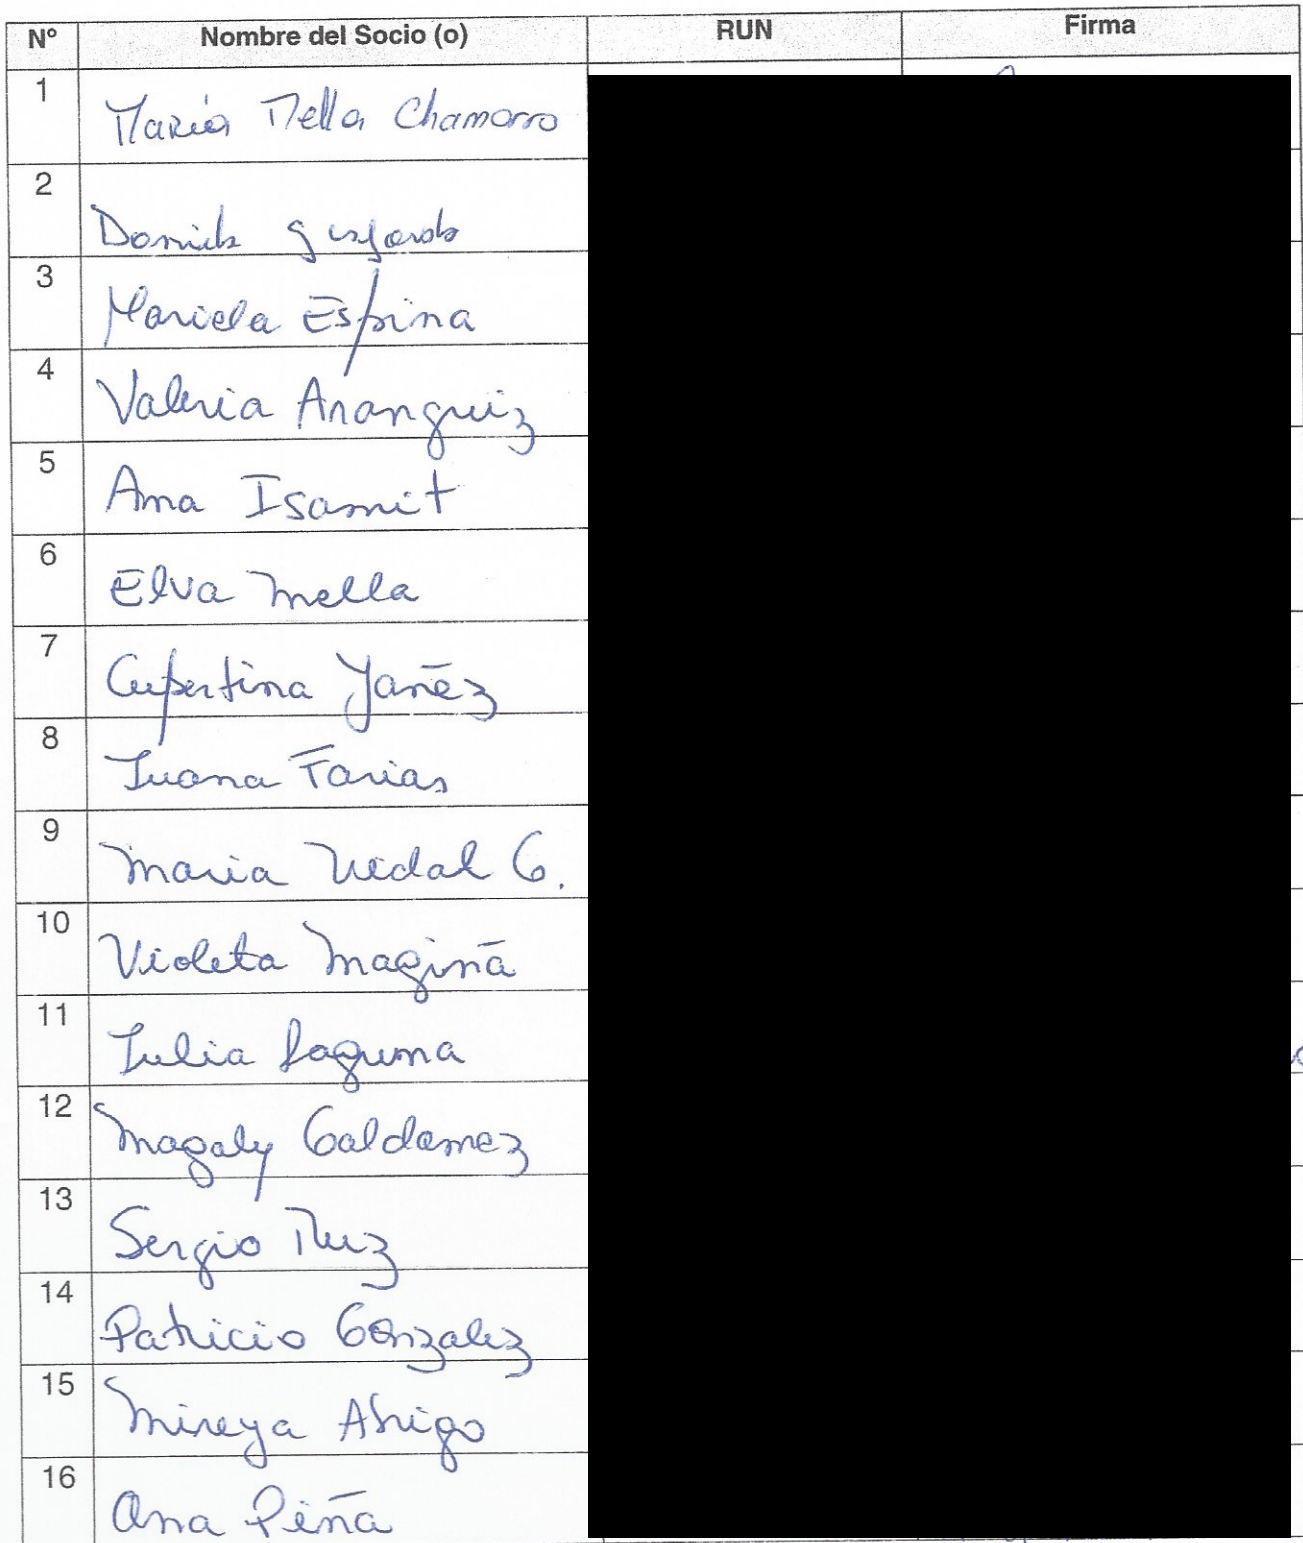 Nº Nombre del Socio (o) RUN Firma
1 María Mella Chamorro
2 Daniela
3 Mariela Espina
4 Valeria Aranguiz
5 Ana Isamit
6 Elva Mella
7 Cupertina Yañez
8 Juana Farias
9 Maria Vidal G.
10 Violeta Magiña
11 Julia Laguna
12 Magaly Galdamez
13 Sergio Ruz
14 Patricio Gonzalez
15 Mireya Abrigo
16 Ana Piña